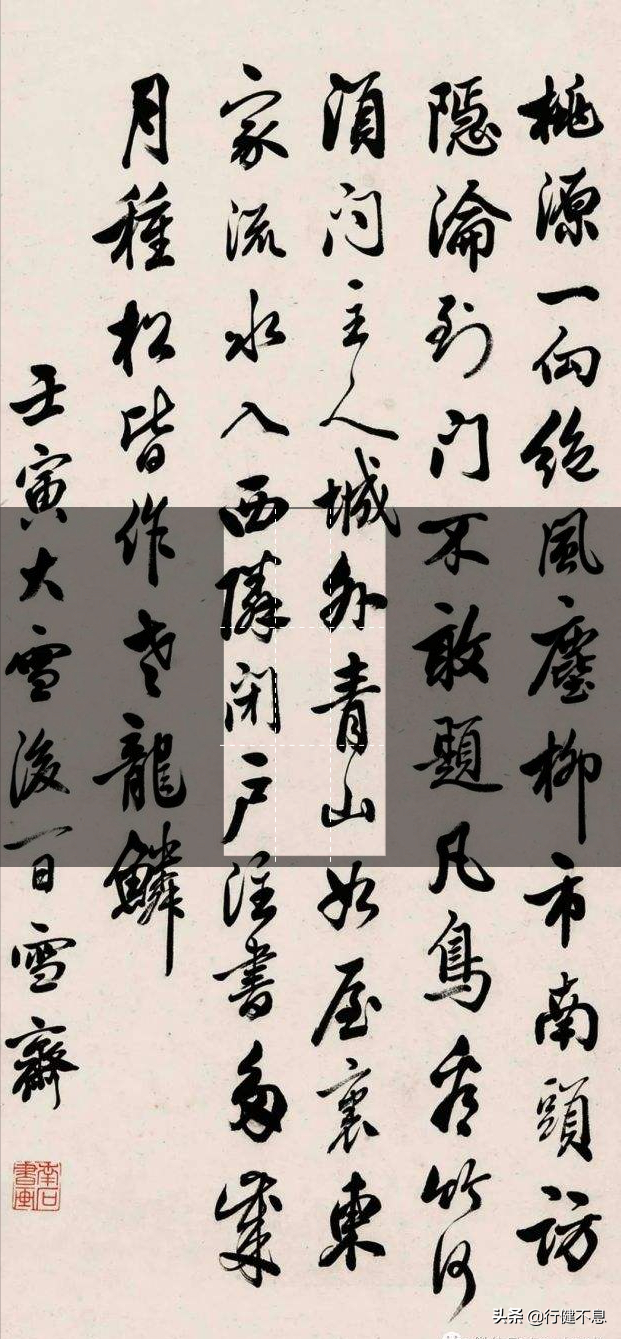 桃源一向絶風塵柳市南頭訪
隱淪到門不敢題凡鳥看竹何
須問主人城外青山如屋裏東
家流水入西隣閉戶注書多歲
月種松皆作老龍鱗
壬寅大雪後一日雪齋
南石書画
头条 @行健不息